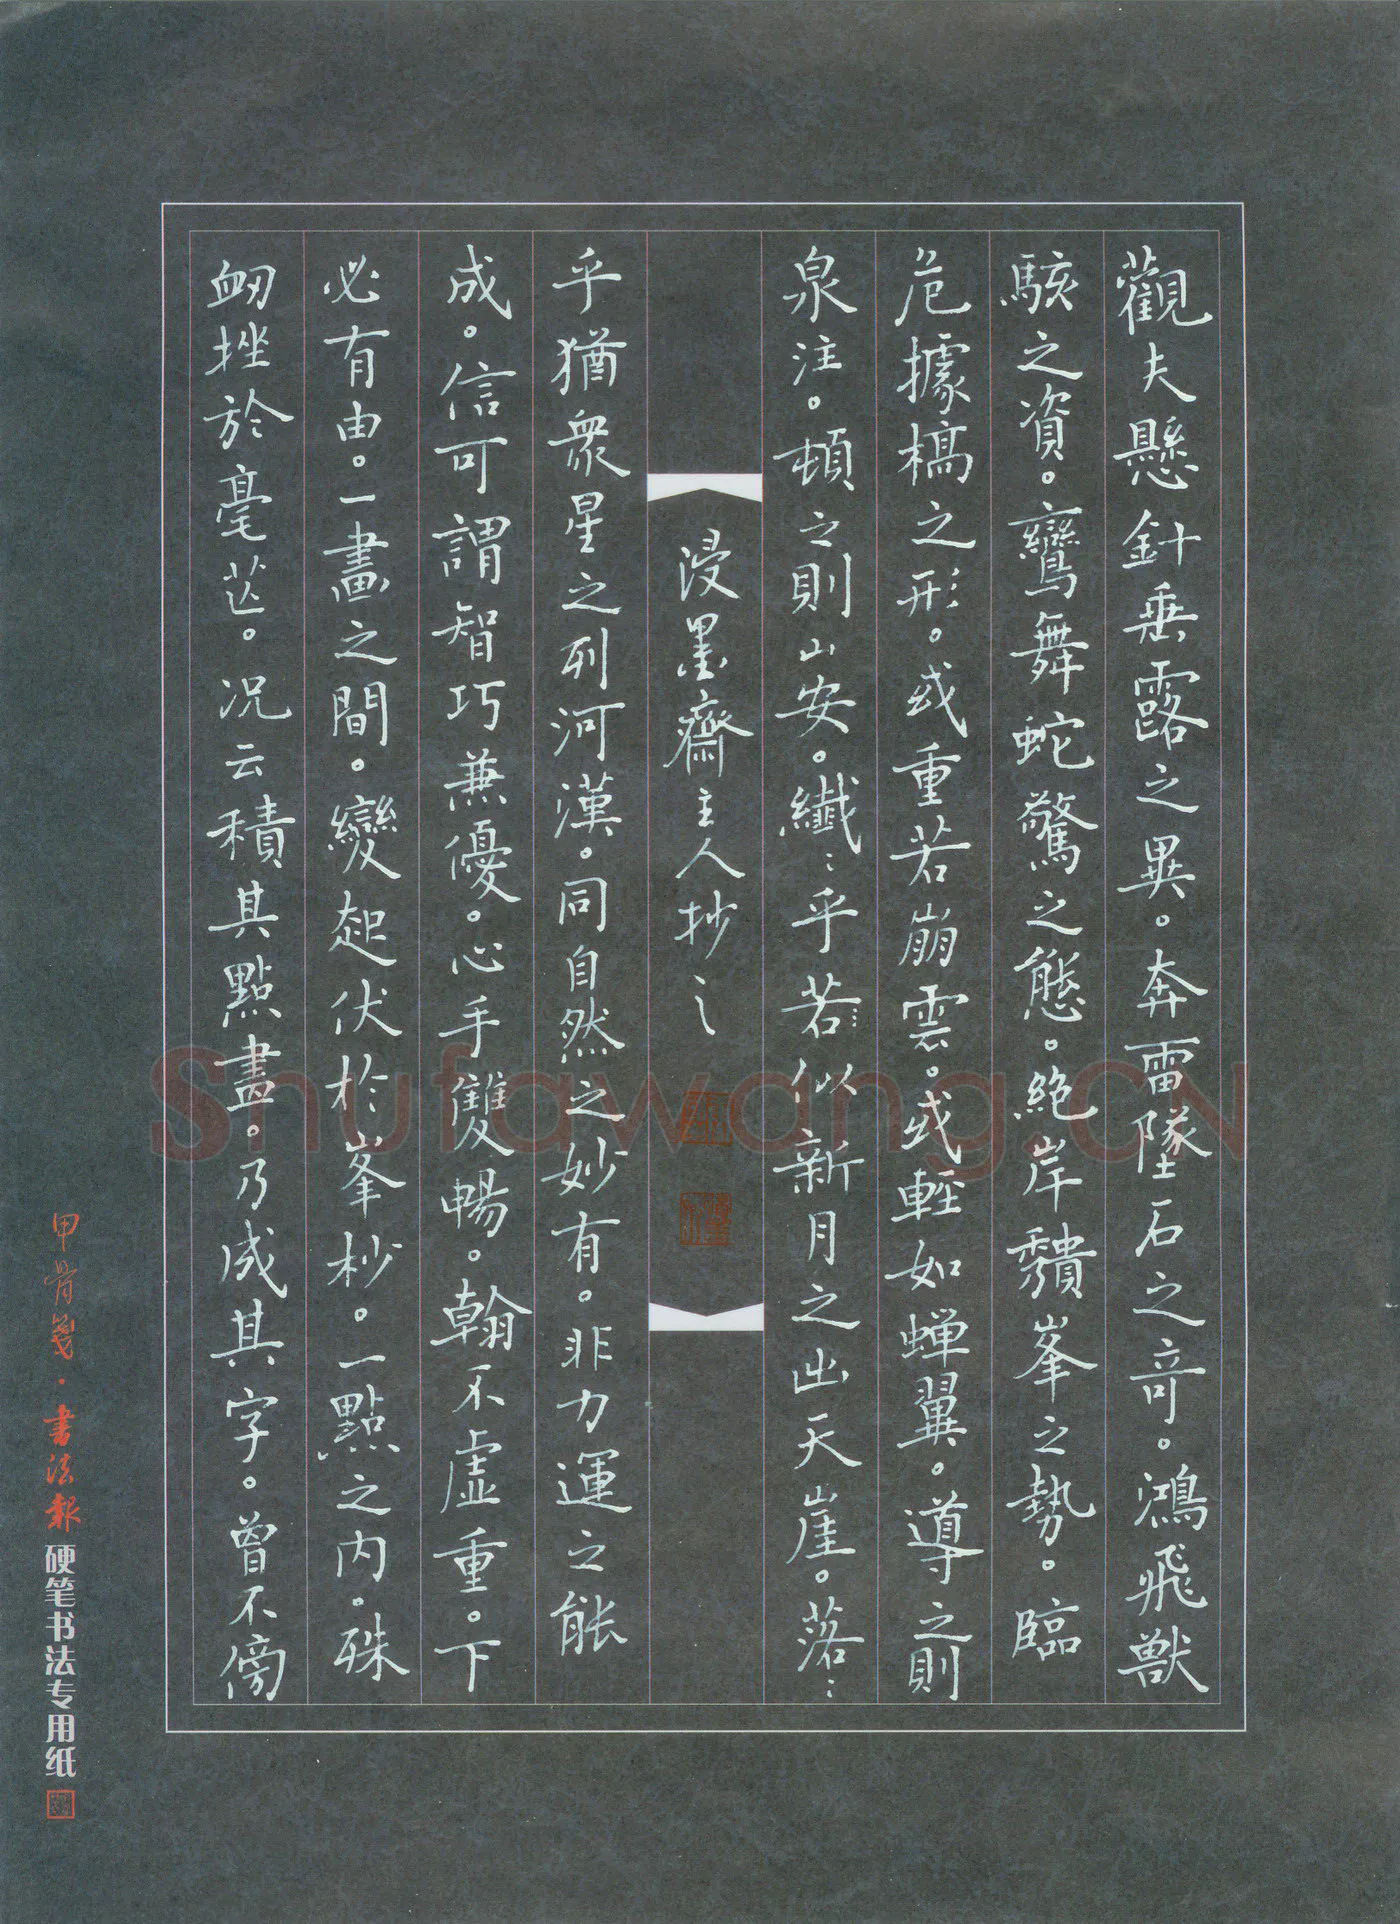 觀夫懸針垂露之異。奔雷墜石之竒。鴻飛獸
駭之資。鸞舞蛇驚之態。絶岸頽峯之勢。臨
危據槁之形。或重若崩雲。或輕如蟬翼。導之則
泉注。頓之則山安。纖〻乎若似新月之出天崖。落〻
浸墨齋主人抄之
乎猶衆星之列河漢。同自然之妙有。非力運之能
成。信可謂智巧兼優。心手雙暢。翰不虛重。下
必有由。一畫之間。變起伏於峯杪。一點之内。殊
衂挫於毫芒。况云積其點畫。乃成其字。曾不傍
甲骨箋·書法報硬笔书法专用纸
Shufawang.CN